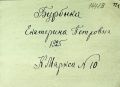 Бурбика
Екатерина Петровна
1925
К. Маркса № 10